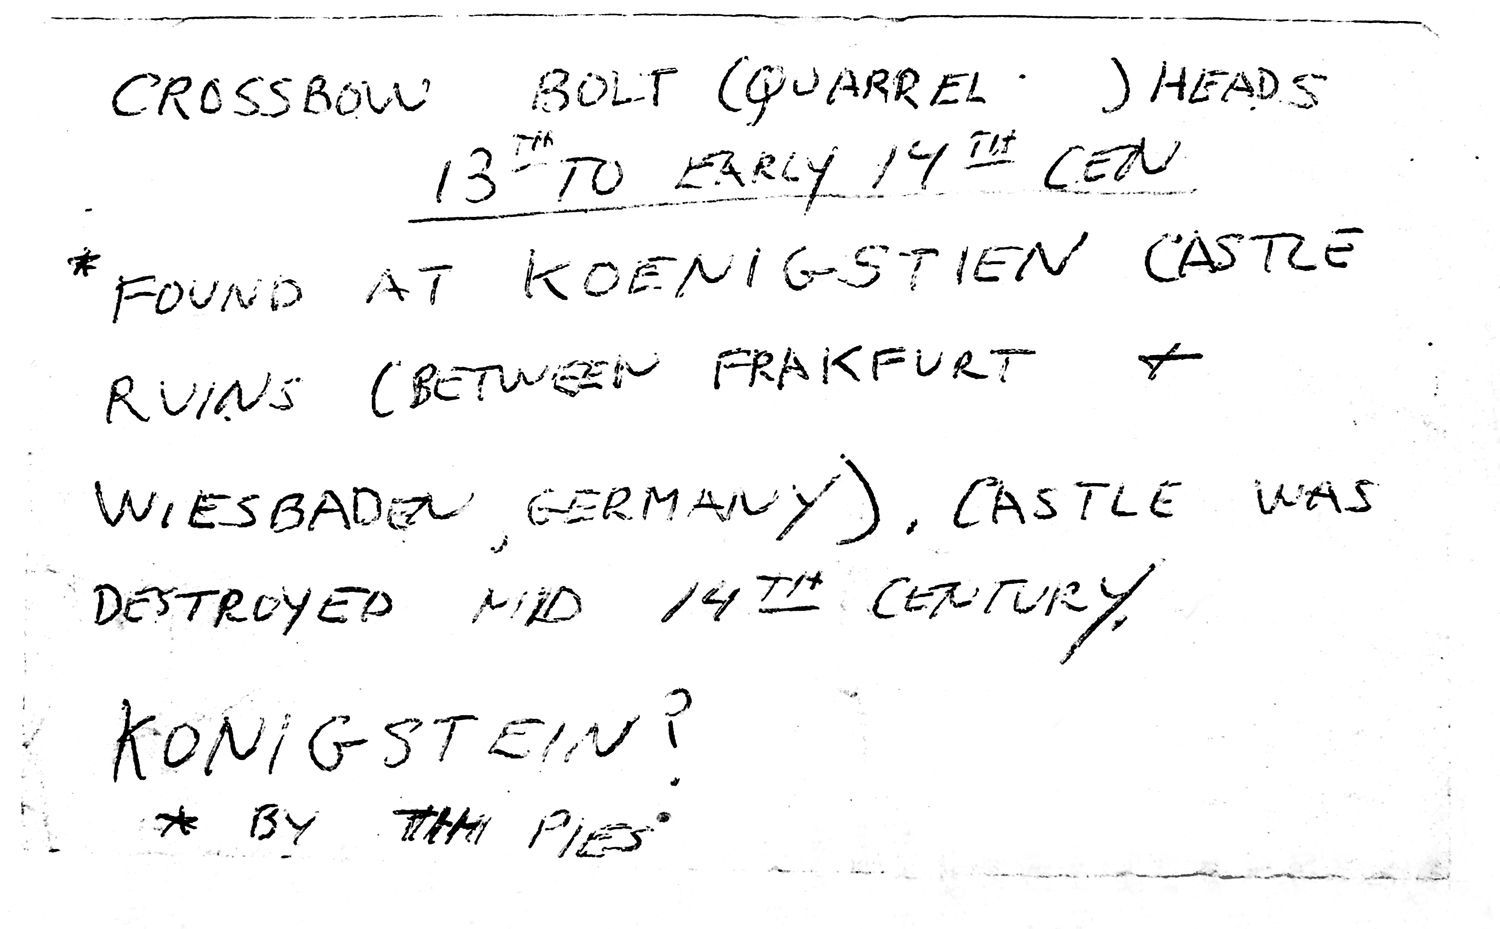 CROSSBOW BOLT (QUARREL ) HEADS
13TH TO EARLY 14TH CEN
* FOUND AT KOENIGSTIEN CASTLE
RUINS (BETWEEN FRAKFURT +
WIESBADEN, GERMANY). CASTLE WAS
DESTROYED MID 14TH CENTURY.
KONIGSTEIN?
* BY PIES